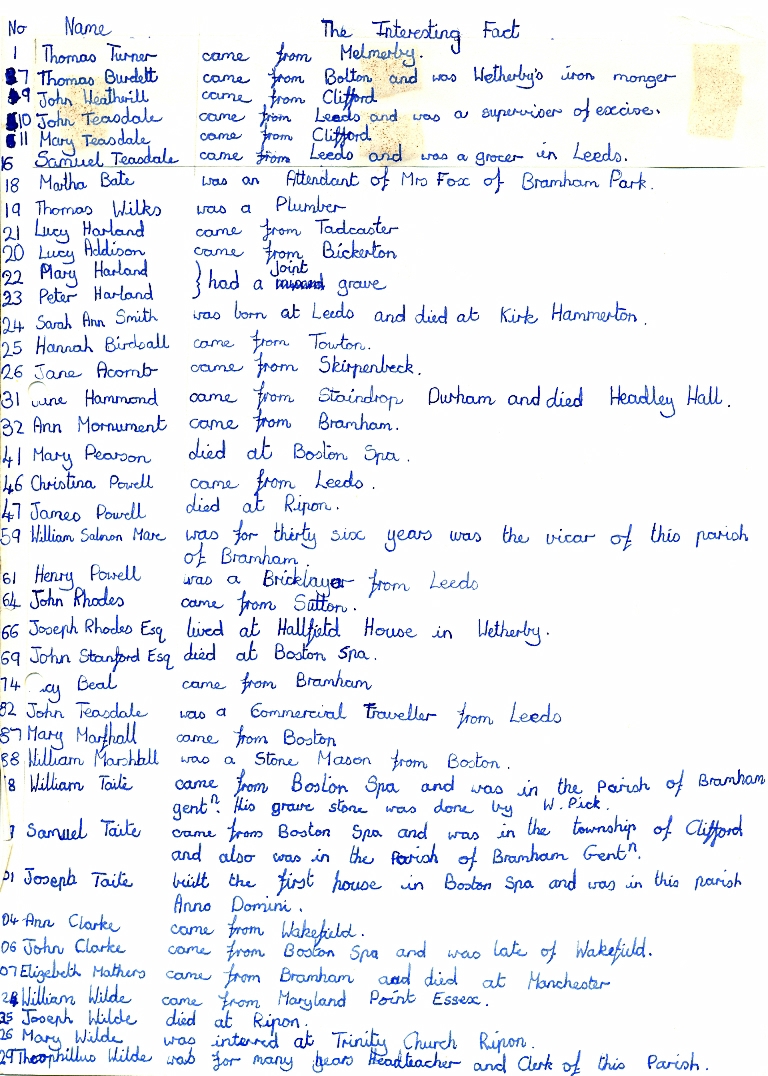 No Name The Interesting Fact
1 Thomas Turner came from Melmerby.
7 Thomas Burdett came from Bolton and was Wetherby's iron monger
9 John Weatherill came from Clifford
10 John Teasdale came from Leeds and was a superviser of excise.
11 Mary Teasdale came from Clifford
16 Samuel Teasdale came from Leeds and was a grocer in Leeds.
18 Martha Bate was an Attendant of Mrs Fox of Bramham Park.
19 Thomas Wilks was a Plumber
21 Lucy Harland came from Tadcaster
20 Lucy Addison came from Bickerton
22 Mary Harland } had a Joint grave
23 Peter Harland
24 Sarah Ann Smith was born at Leeds and died at Kirk Hammerton.
25 Hannah Birdsall came from Towton.
26 Jane Acomb came from Skirpenbeck.
31 June Hammond came from Staindrop Durham and died Headley Hall.
32 Ann Mornument came from Bramham.
41 Mary Pearson died at Boston Spa.
46 Christina Powell came from Leeds.
47 James Powell died at Ripon.
59 William Salmon Mare was for thirty six years was the vicar of this parish
of Bramham.
61 Henry Powell was a Bricklayer from Leeds
64 John Rhodes came from Sutton.
66 Joseph Rhodes Esq lived at Hallfield House in Wetherby.
69 John Stanford Esq died at Boston Spa.
74 cy Beal came from Bramham
82 John Teasdale was a Commercial Traveller from Leeds
87 Mary Marshall came from Boston
88 William Marshall was a Stone Mason from Boston.
8 William Taite came from Boston Spa and was in the Parish of Bramham
gentn. this grave stone was done by W. Pick.
Samuel Taite came from Boston Spa and was in the township of Clifford
and also was in the Parish of Bramham Gentn.
01 Joseph Taite built the first house in Boston Spa and was in this parish
Anno Domini.
04 Ann Clarke came from Wakefield.
06 John Clarke came from Boston Spa and was late of Wakefield.
07 Elizebeth Mathers came from Bramham and died at Manchester
24 William Wilde came from Maryland Point Essex.
25 Joseph Wilde died at Ripon.
26 Mary Wilde was interred at Trinity Church Ripon.
29 Theophillus Wilde was for many years Headteacher and Clerk of this Parish.